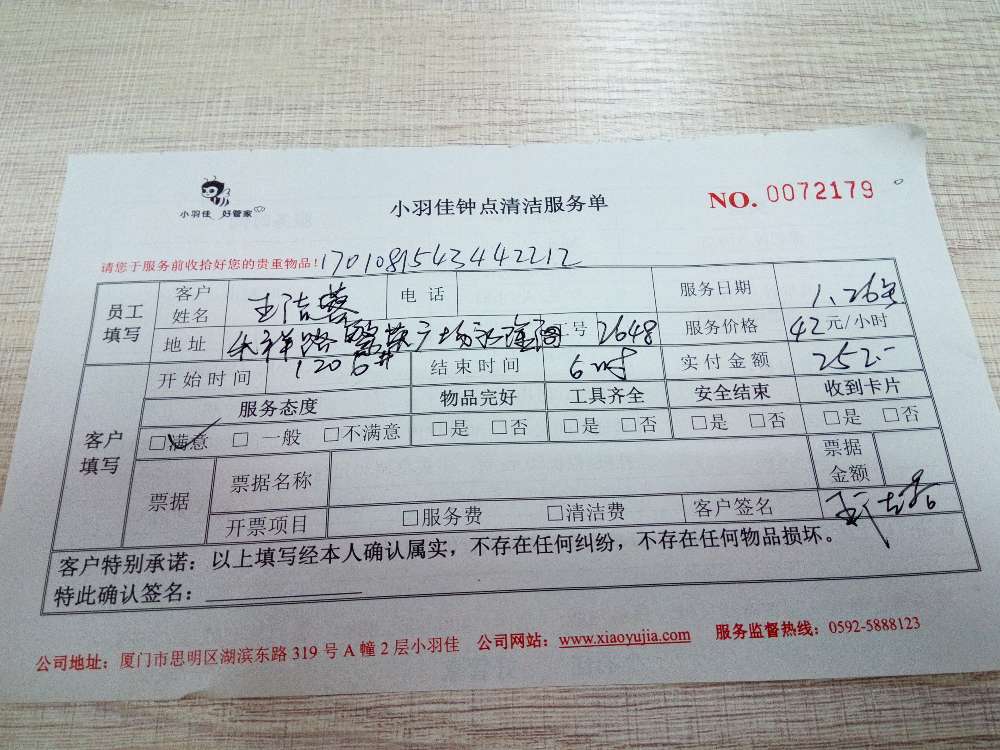 小羽佳 好管家
小羽佳钟点清洁服务单
NO. 0072179
请您于服务前收拾好您的贵重物品!170108154344 2212
员工填写 客户姓名 王洁蓉 电话 服务日期 1.26
地址 广场 工号 2648 服务价格 42元/小时
开始时间 结束时间 6时 实付金额 252.-
客户填写 服务态度 物品完好 工具齐全 安全结束 收到卡片
□满意 □一般 □不满意 □是 □否 □是 □否 □是 □否 □是 □否
票据 票据名称 票据金额
开票项目 □服务费 □清洁费 客户签名
客户特别承诺：以上填写经本人确认属实，不存在任何纠纷，不存在任何物品损坏。
特此确认签名：
公司地址：厦门市思明区湖滨东路 319 号 A 幢 2 层小羽佳 公司网站：www.xiaoyujia.com 服务监督热线：0592-5888123